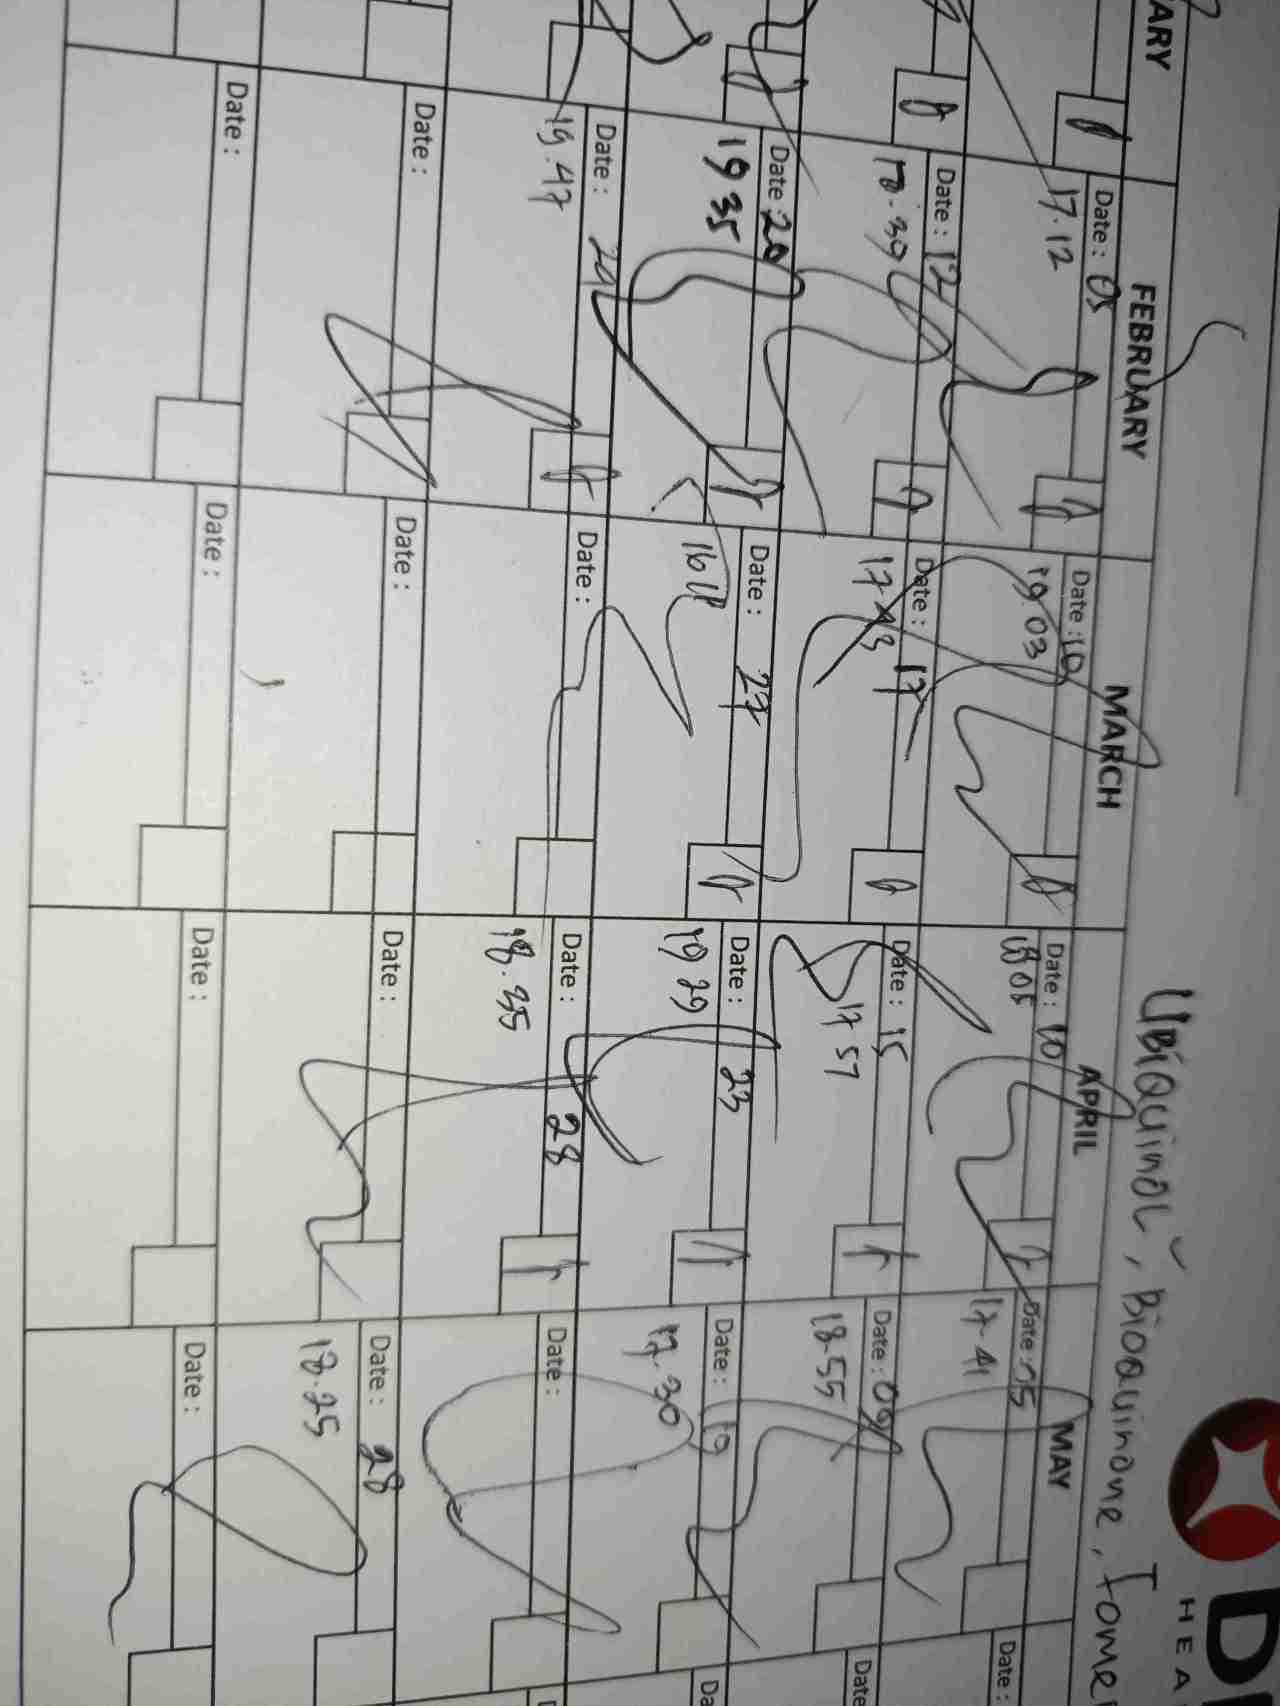 UBiQUiNOL, BiOQUiNONe,
D
HEA
ARY
FEBRUARY
MARCH
APRIL
MAY
Date : 05
17.12
Date : 10
19.03
Date : 10
Date : 05
17.41
Date :
Date : 12
Date : 17
17.43
Date : 15
17 57
Date : 09
18.55
Date
Date : 20
19 35
Date : 27
Date : 23
19 29
Date : 19
17.30
Da
Date :
19.47
Date :
Date : 28
18.35
Date :
D
Date :
Date :
Date :
Date : 28
18.25
Date :
Date :
Date :
Date :